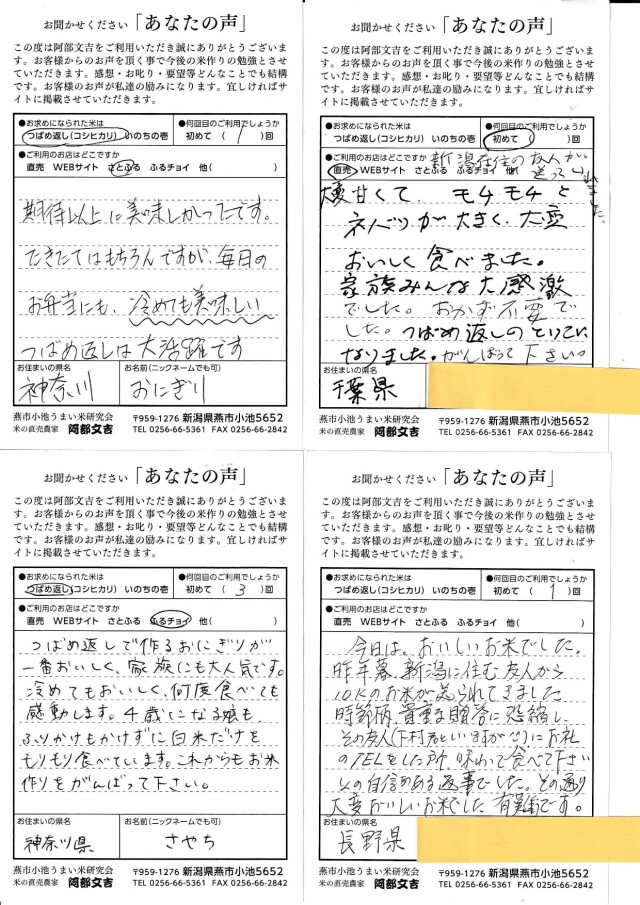 お聞かせください「あなたの声」
この度は阿部文吉をご利用いただき誠にありがとうございま
す。お客様からのお声を頂く事で今後の米作りの勉強とさせ
ていただきます。感想・お叱り・要望等どんなことでも結構
です。お客様のお声が私達の励みになります。宜しければサ
イトに掲載させていただきます。
●お求めになられた米は
つばめ返し(コシヒカリ) いのちの壱
●何回目のご利用でしょうか
初めて ( 1 )回
●ご利用のお店はどこですか
直売 WEBサイト さとふる ふるチョイ 他( )
期待以上に美味しかったです。
たきたてはもちろんですが、毎日の
お弁当にも、冷めても美味しい
つばめ返しは大活躍です
お住まいの県名
神奈川
お名前(ニックネームでも可)
おにぎり
燕市小池うまい米研究会
米の直売農家 阿部文吉
〒959-1276 新潟県燕市小池5652
TEL 0256-66-5361 FAX 0256-66-2842
お聞かせください「あなたの声」
この度は阿部文吉をご利用いただき誠にありがとうございま
す。お客様からのお声を頂く事で今後の米作りの勉強とさせ
ていただきます。感想・お叱り・要望等どんなことでも結構
です。お客様のお声が私達の励みになります。宜しければサ
イトに掲載させていただきます。
●お求めになられた米は
つばめ返し(コシヒカリ) いのちの壱
●何回目のご利用でしょうか
初めて ( )回
●ご利用のお店はどこですか
新潟在住の友人が
送ってくれました。
直売 WEBサイト さとふる ふるチョイ 他(
甘くて、モチモチと
ネバリが大きく、大変
おいしく食べました。
家族みんな大感激
でした。おかず不要で
した。つばめ返しのとりこに
なりました。がんばって下さい。
お住まいの県名
千葉県
燕市小池うまい米研究会
米の直売農家 阿部文吉
〒959-1276 新潟県燕市小池5652
TEL 0256-66-5361 FAX 0256-66-2842
お聞かせください「あなたの声」
この度は阿部文吉をご利用いただき誠にありがとうございま
す。お客様からのお声を頂く事で今後の米作りの勉強とさせ
ていただきます。感想・お叱り・要望等どんなことでも結構
です。お客様のお声が私達の励みになります。宜しければサ
イトに掲載させていただきます。
●お求めになられた米は
つばめ返し(コシヒカリ) いのちの壱
●何回目のご利用でしょうか
初めて ( 3 )回
●ご利用のお店はどこですか
直売 WEBサイト さとふる ふるチョイ 他( )
つばめ返しで作るおにぎりが
一番おいしく、家族にも大人気です。
冷めてもおいしく、何度食べても
感動します。4歳になる娘も、
ふりかけもかけずに白米だけを
もりもり食べています。これからもお米
作りをがんばって下さい。
お住まいの県名
神奈川県
お名前(ニックネームでも可)
さやち
燕市小池うまい米研究会
米の直売農家 阿部文吉
〒959-1276 新潟県燕市小池5652
TEL 0256-66-5361 FAX 0256-66-2842
お聞かせください「あなたの声」
この度は阿部文吉をご利用いただき誠にありがとうございま
す。お客様からのお声を頂く事で今後の米作りの勉強とさせ
ていただきます。感想・お叱り・要望等どんなことでも結構
です。お客様のお声が私達の励みになります。宜しければサ
イトに掲載させていただきます。
●お求めになられた米は
つばめ返し(コシヒカリ) いのちの壱
●何回目のご利用でしょうか
初めて ( 1 )回
●ご利用のお店はどこですか
直売 WEBサイト さとふる ふるチョイ 他( )
今日は、おいしいお米でした。
昨年暮、新潟に住む友人から
10Kのお米が送られてきました
時節柄、貴重な贈答に恐縮し、
その友人(下村君といいますが)にお礼
のTELをした所、味わって食べて下さい
との自信のある返事でした。その通り
大変おいしいお米でした 有難うです。
お住まいの県名
長野県
燕市小池うまい米研究会
米の直売農家 阿部文吉
〒959-1276 新潟県燕市小池5652
TEL 0256-66-5361 FAX 0256-66-2842